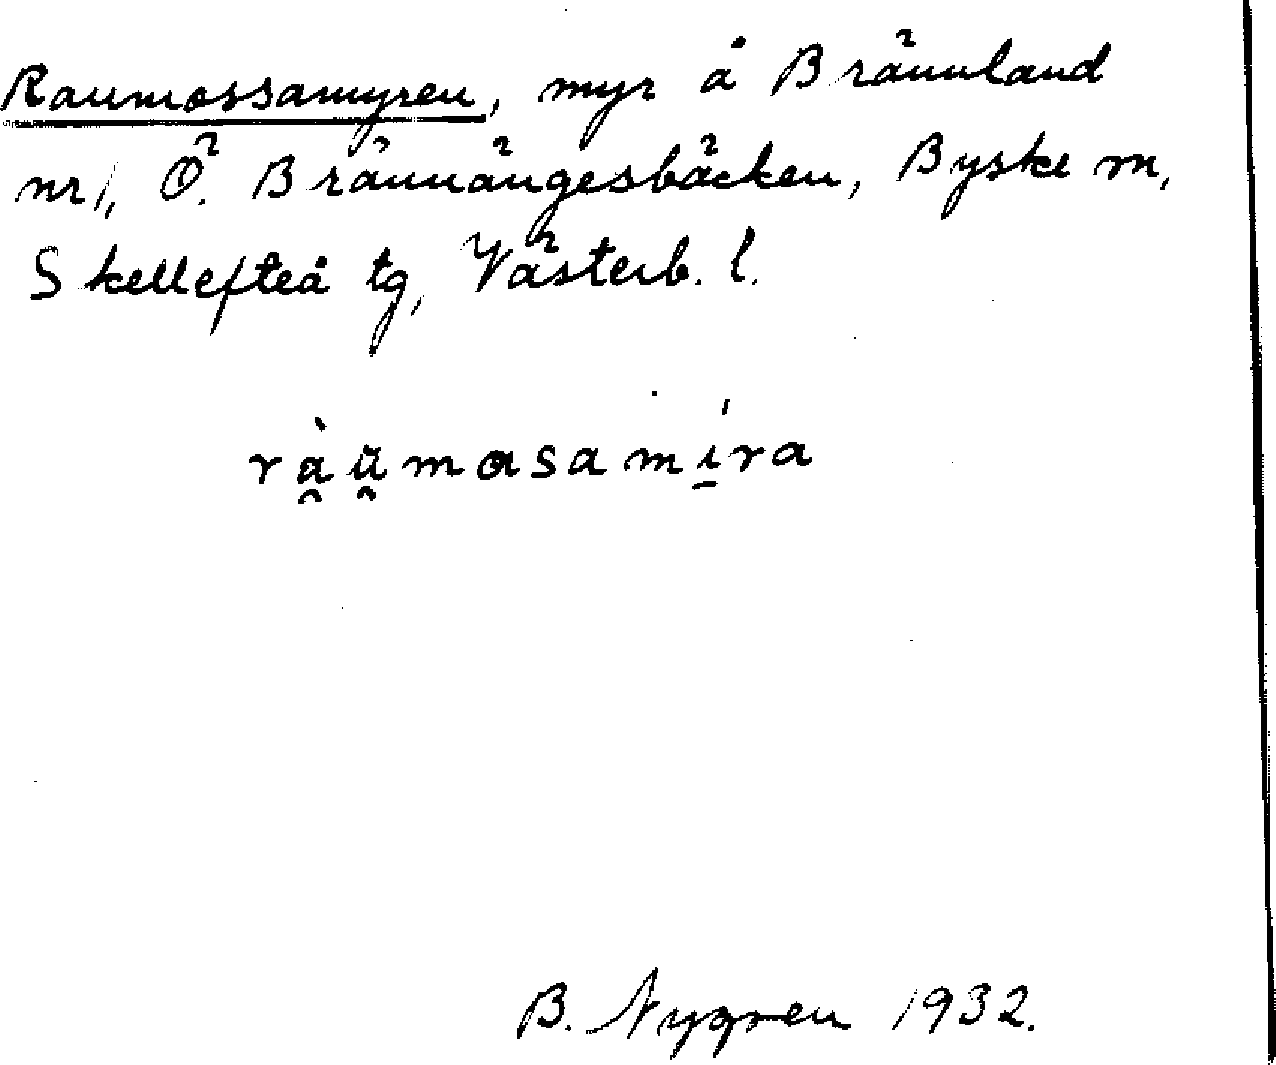 Raumossamyren, myr å Brännland
nr 1, Ö. Brännängesbäcken, Byske sn,
Skellefteå tg, Västerb. l.
ràŭmosamíra
B. Nygren 1932.